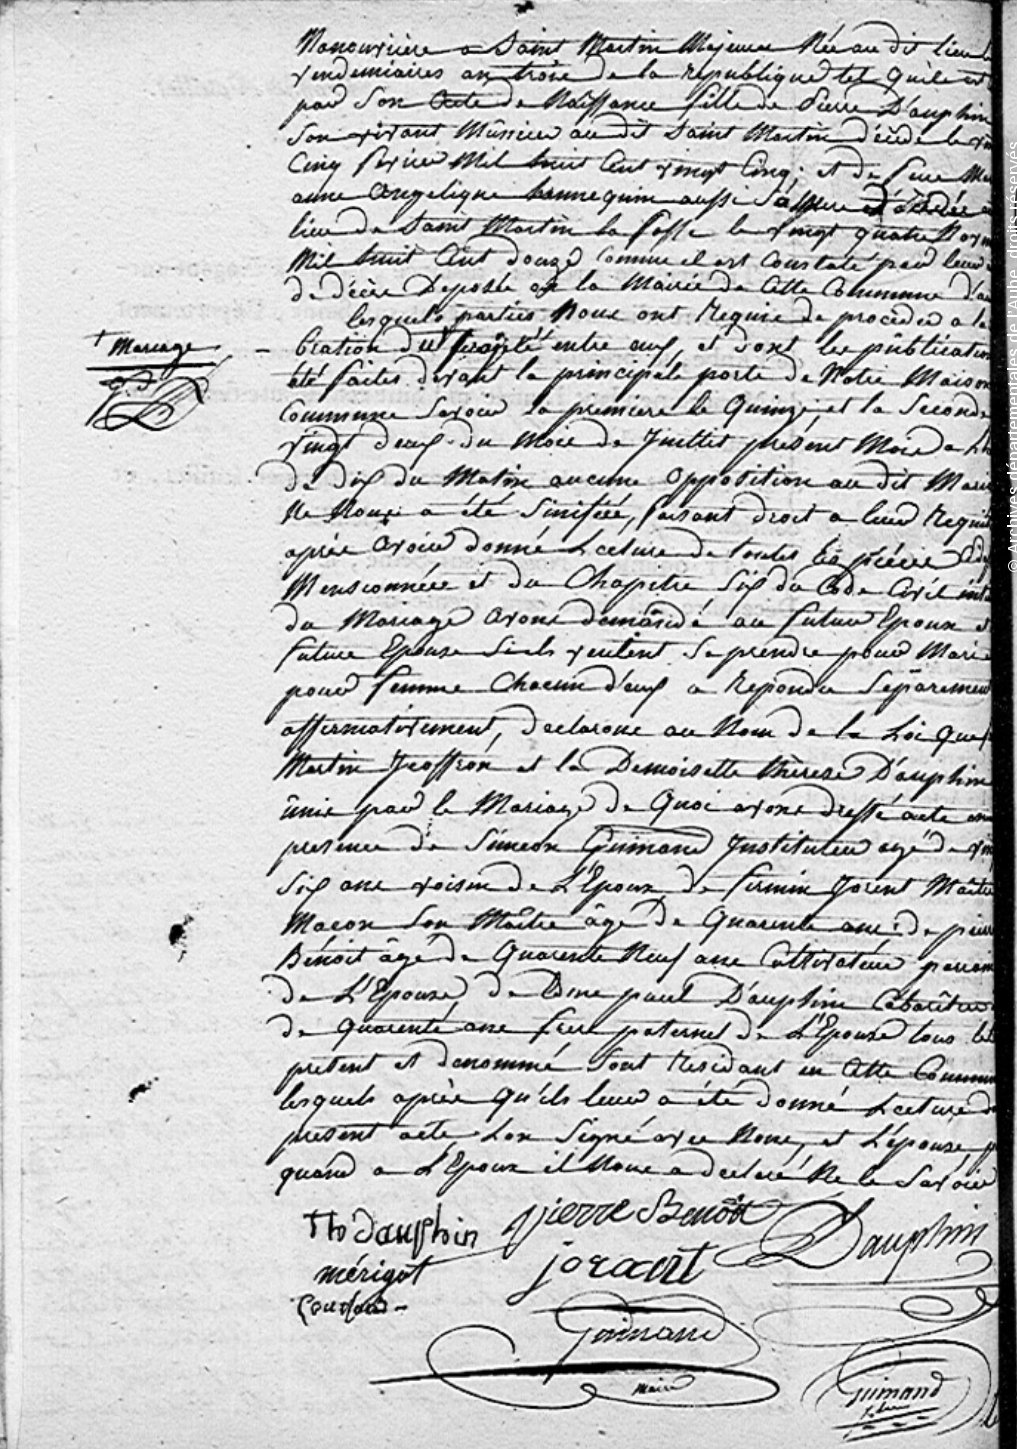 Manouvrière a Saint Martin Majeure Née au dit lieu le
vendemiaires an trois de la republique tel quile est
par Son Acte de Naissance fille de Pierre Dauphin
Son vivant Musicien au dit Saint Martin décédé le
Cinq fevrier Mil huit Cent vingt Cinq; et de feue
anne Angelique hennequin aussi Sa Mere décédée
lieu de Saint Martin la fosse le vingt quatre
Mil huit Cent douze Comme il est Constaté par leur
de décès Deposée en la Mairie de Cette Commune
lesquels parties Nous ont Requis de procéder a la
+ Mariage
bration du projeté entre eux et dont les publication
été faites devant la principale porte de Notre Maison
Commune Savoir la premiere le Quinze et la Seconde
vingt deux du Mois de Juillet présent Mois a
de dix du Matin aucune Opposition au dit Mariage
Ne Nous a été Sinifiée, faisant droit a leur
après Avoir donné Lecture de toutes les pièces
Mensionnées et du Chapitre Six du Code Civil
du Mariage avons demandé au futur Epoux et
future Epouse Sils veulent Se prendre pour Mari
pour femme Chacun d'eux a Repondu Séparement
affirmativement, déclarons au Nom de la Loi que
Martin Jeoffron et la Demoiselle thèrese Dauphin
unis par le Mariage de Quoi avons dressé acte en
presence de Simeon Guimand Instituteur agé de
Six ans voisin de L'Epoux de firmin Jorent Maître
Macon Son Maître âgé de Quarente ans: de pierre
Bénoit âgé de Quarente Neuf ans Cultivateur parrain
de L'Epouse, de Come paul Dauphin Cabarêtier
de quarente ans frere paternel de L'Epouse tous
present et denommé Sont residant en Cette Commune
lesquels après Qu'ils leur a été donné Lecture du
présent acte L'on Signé avec Nous, et L'épouse,
quand a L'Epoux il Nous a declaré Ne le Savoir
th dauphin pierre Benoit Dauphin
mérigot jorent
Guimand
maire
Guimand
© Archives départementales de l'Aube, droits réservés